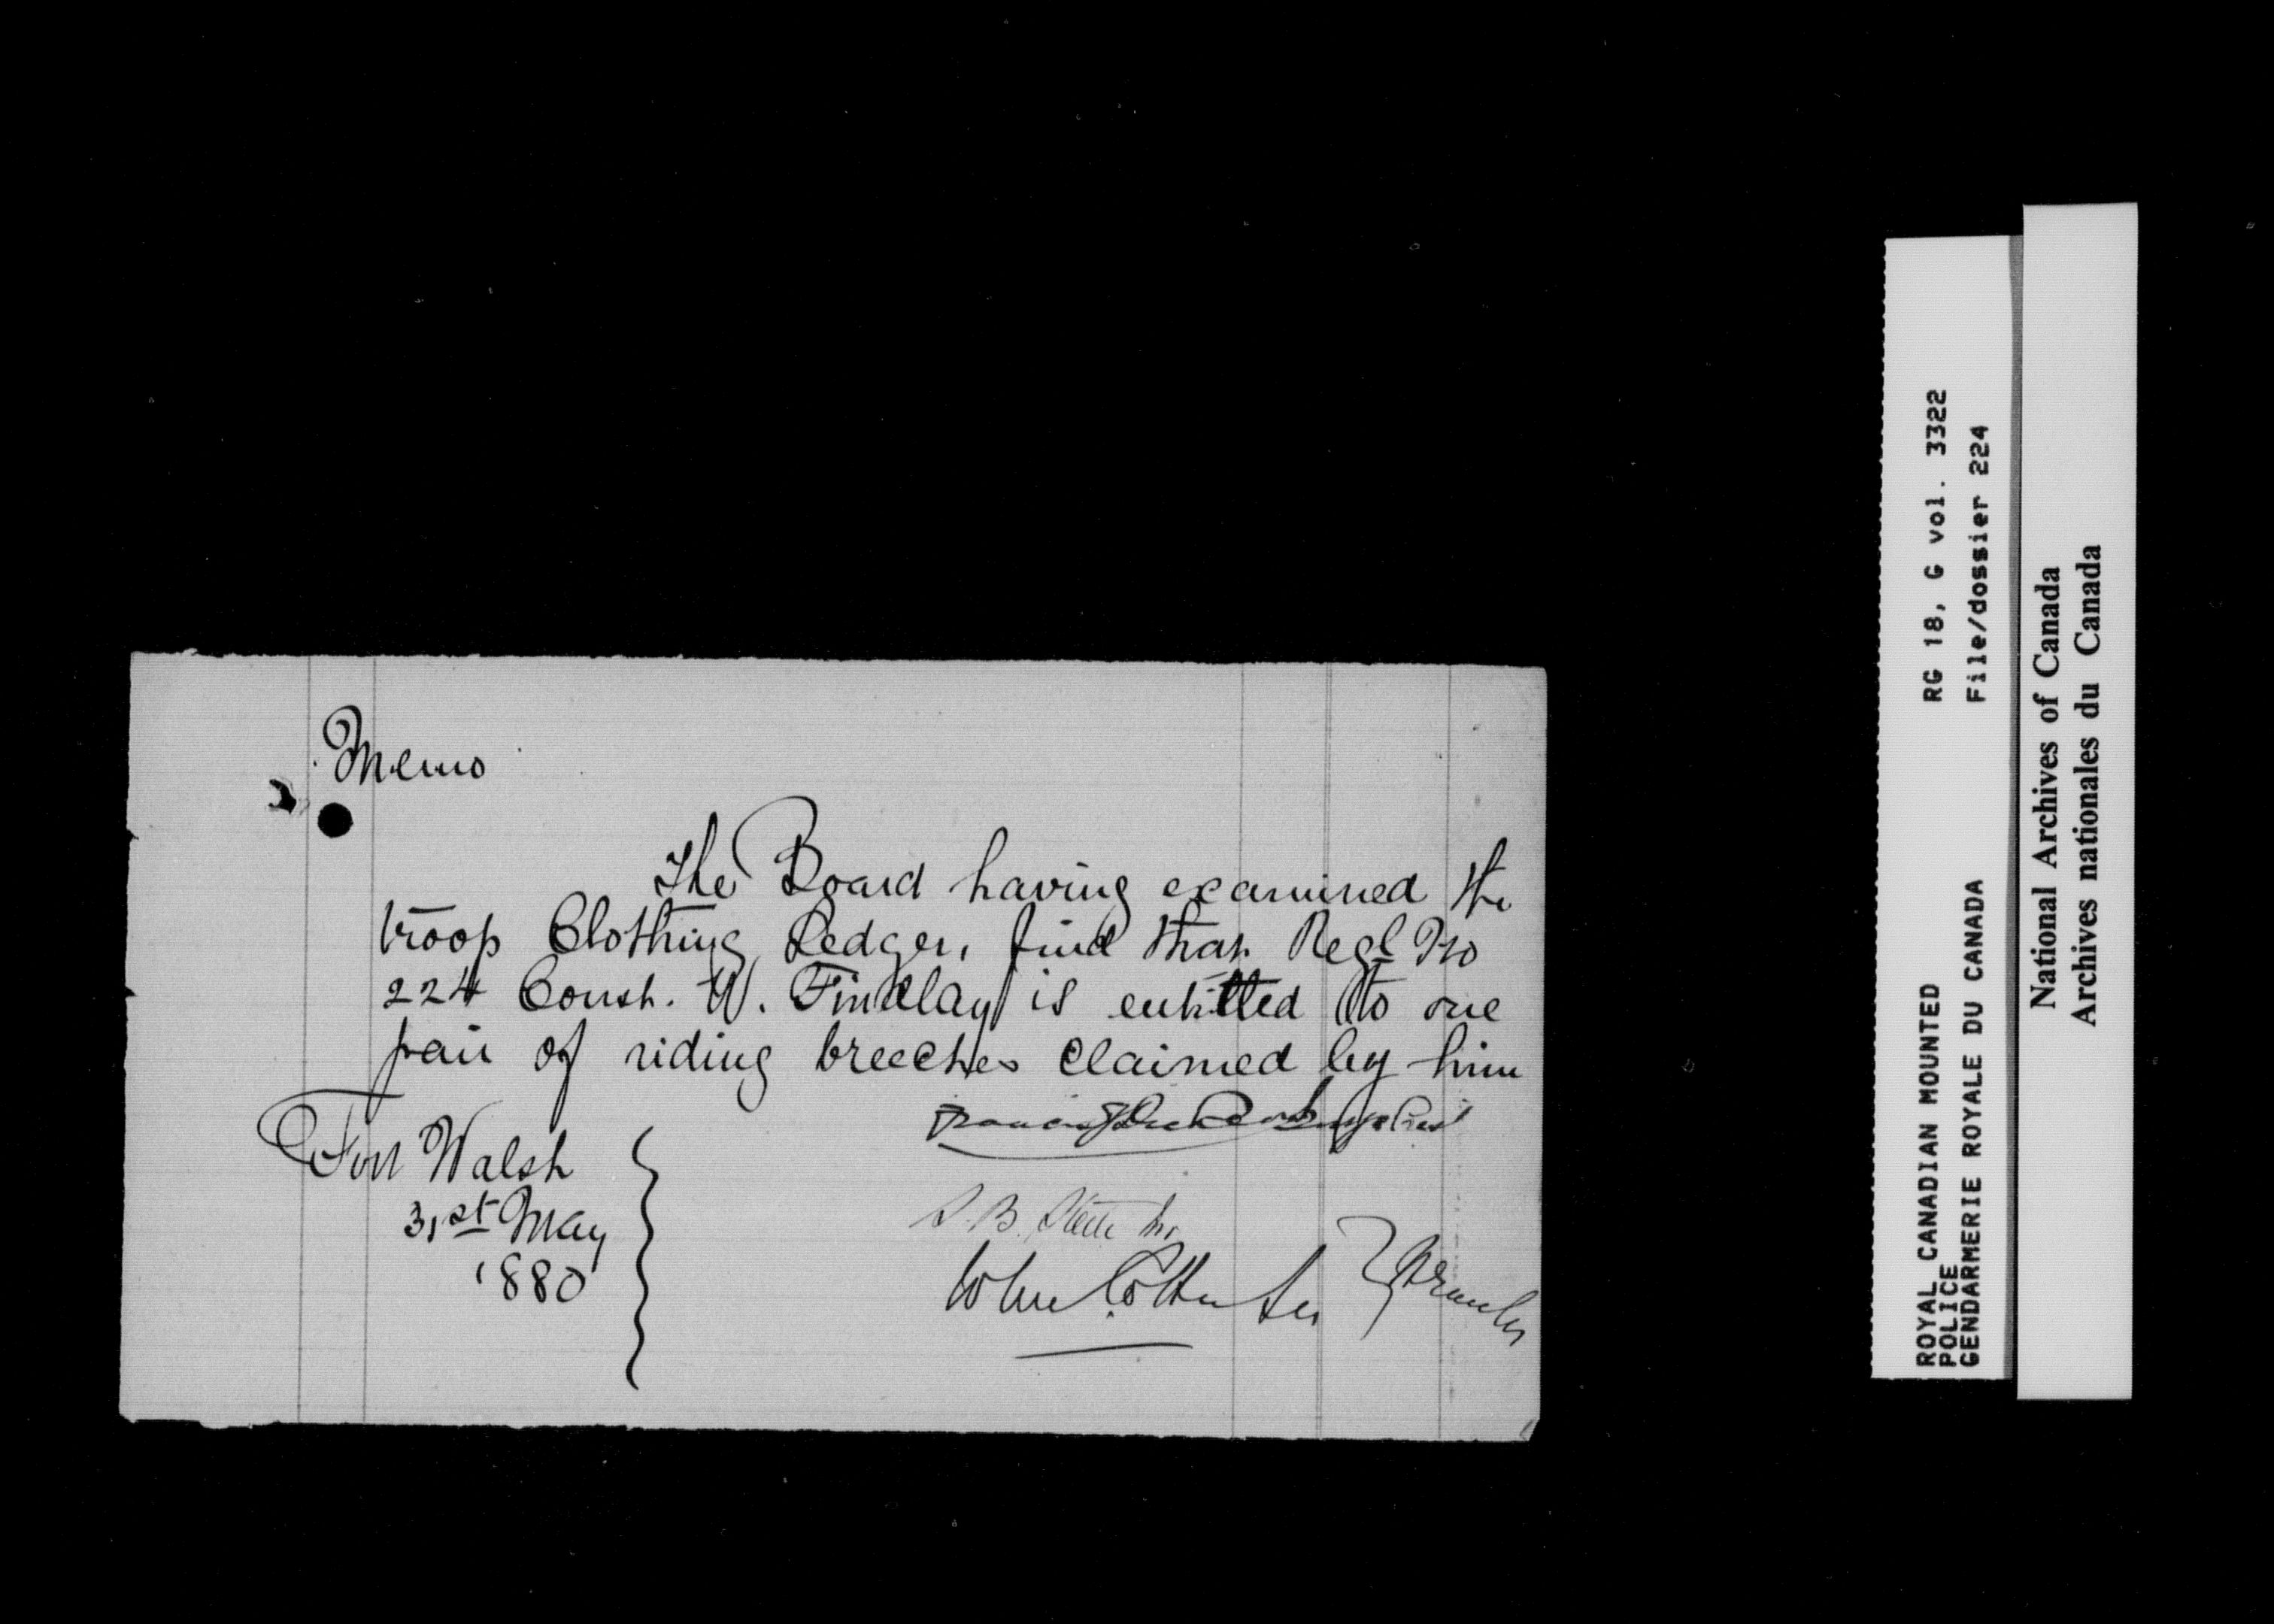 Memo
The Board having examined the
troop Clothing Ledger, find that Regl No
224 Const. W. Findlay is entitled to one
pair of riding breeches claimed by him
Fort Walsh
31st May
1880
Francis J Dickens Pres
S. B. Steele
John Cotton
Members
ROYAL CANADIAN MOUNTED
POLICE
GENDARMERIE ROYALE DU CANADA
RG 18, G vol. 3322
File/dossier 224
National Archives of Canada
Archives nationales du Canada